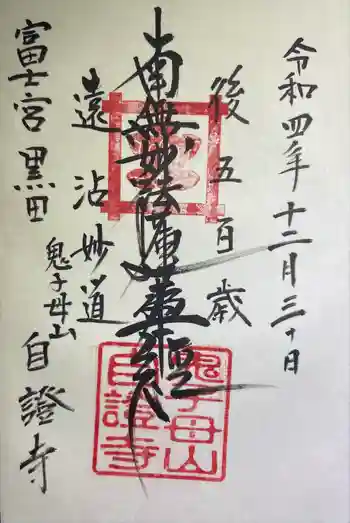 令和四年十二月三十日
後五百歳
南無妙法蓮華経
遠沾妙道
鬼子母山
富士宮黒田
自證寺
鬼子母山
自證寺